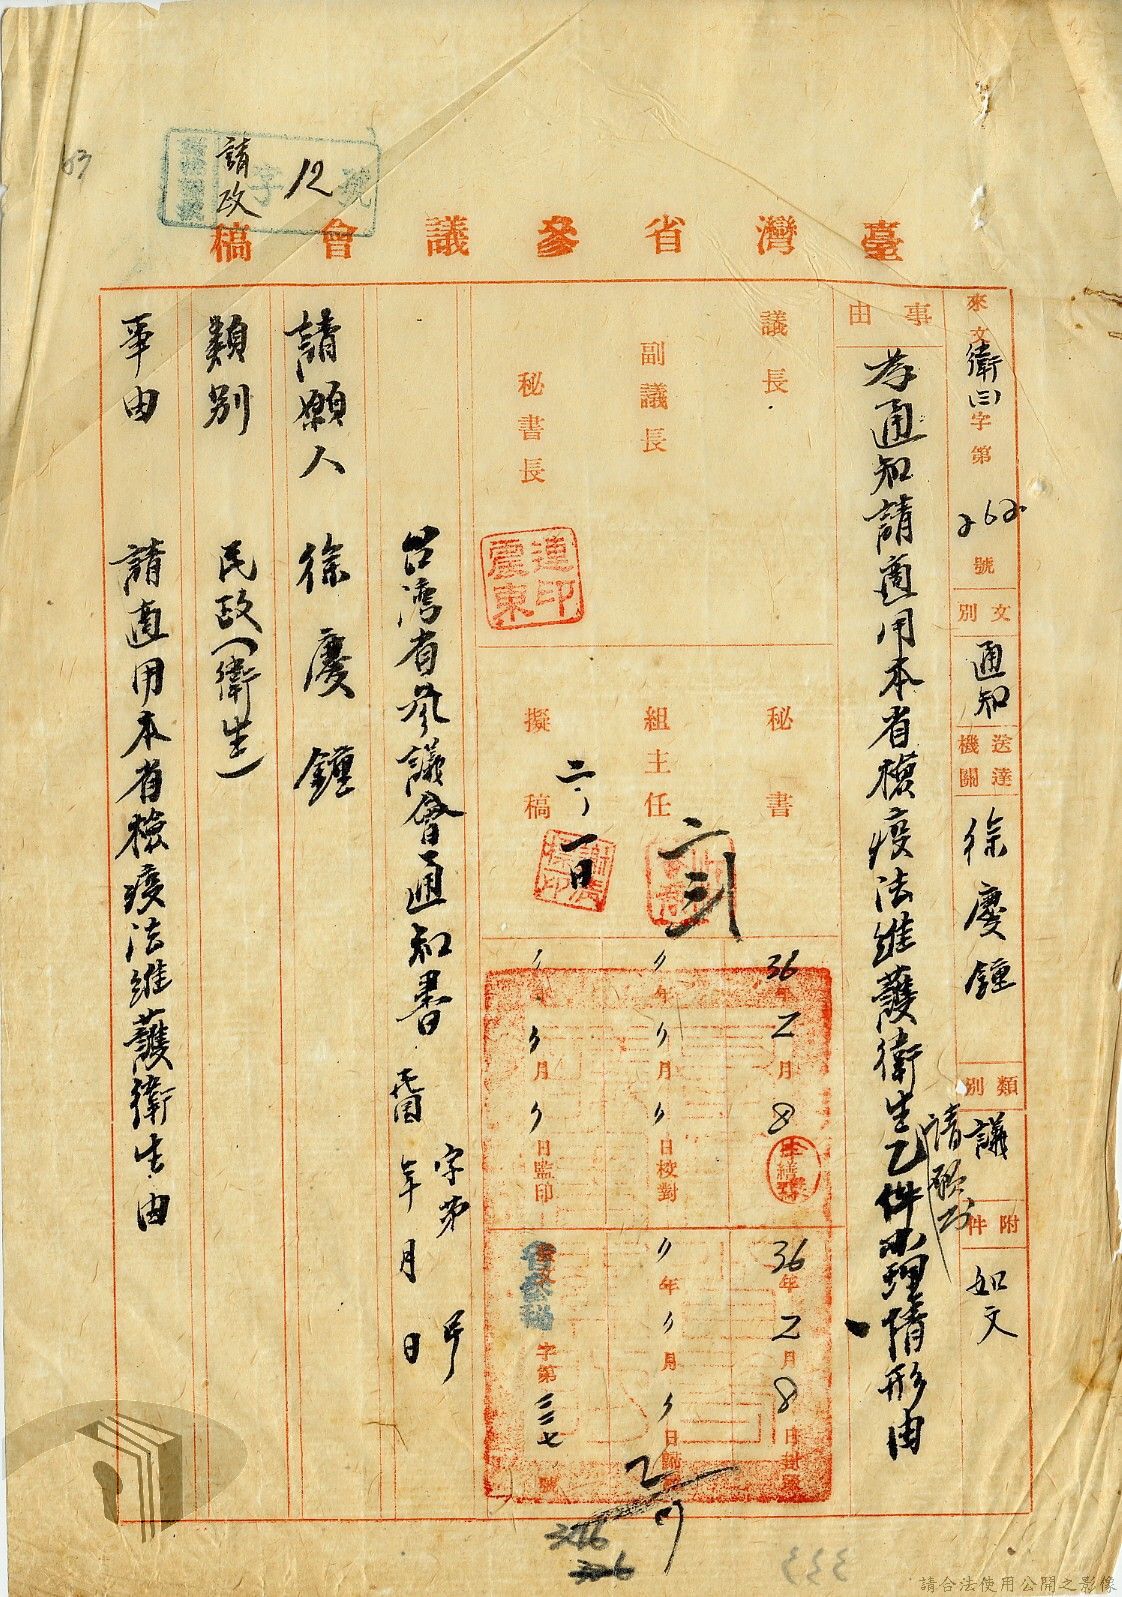 請改 字 12 號
臺灣省參議會稿
來文 衛(三)字第262號
文別 通知
送達機關 徐慶鐘
類別 議
附件 如文
事由 為通知請適用本省檢疫法維護衛生乙件辦理情形由
請願
議長
副議長
秘書長
連震東印
秘書
組主任
擬稿
二、一日
36年2月8日
年 月 日校對
年 月 日監印
36年2月8日封發
年 月 日歸檔
字第三三七號
台灣省參議會通知書
字第 号
民國 年 月 日
請願人 徐慶鐘
類別 民政(衛生)
事由 請適用本省檢疫法維護衛生由
376
333
63
請合法使用公開之影像